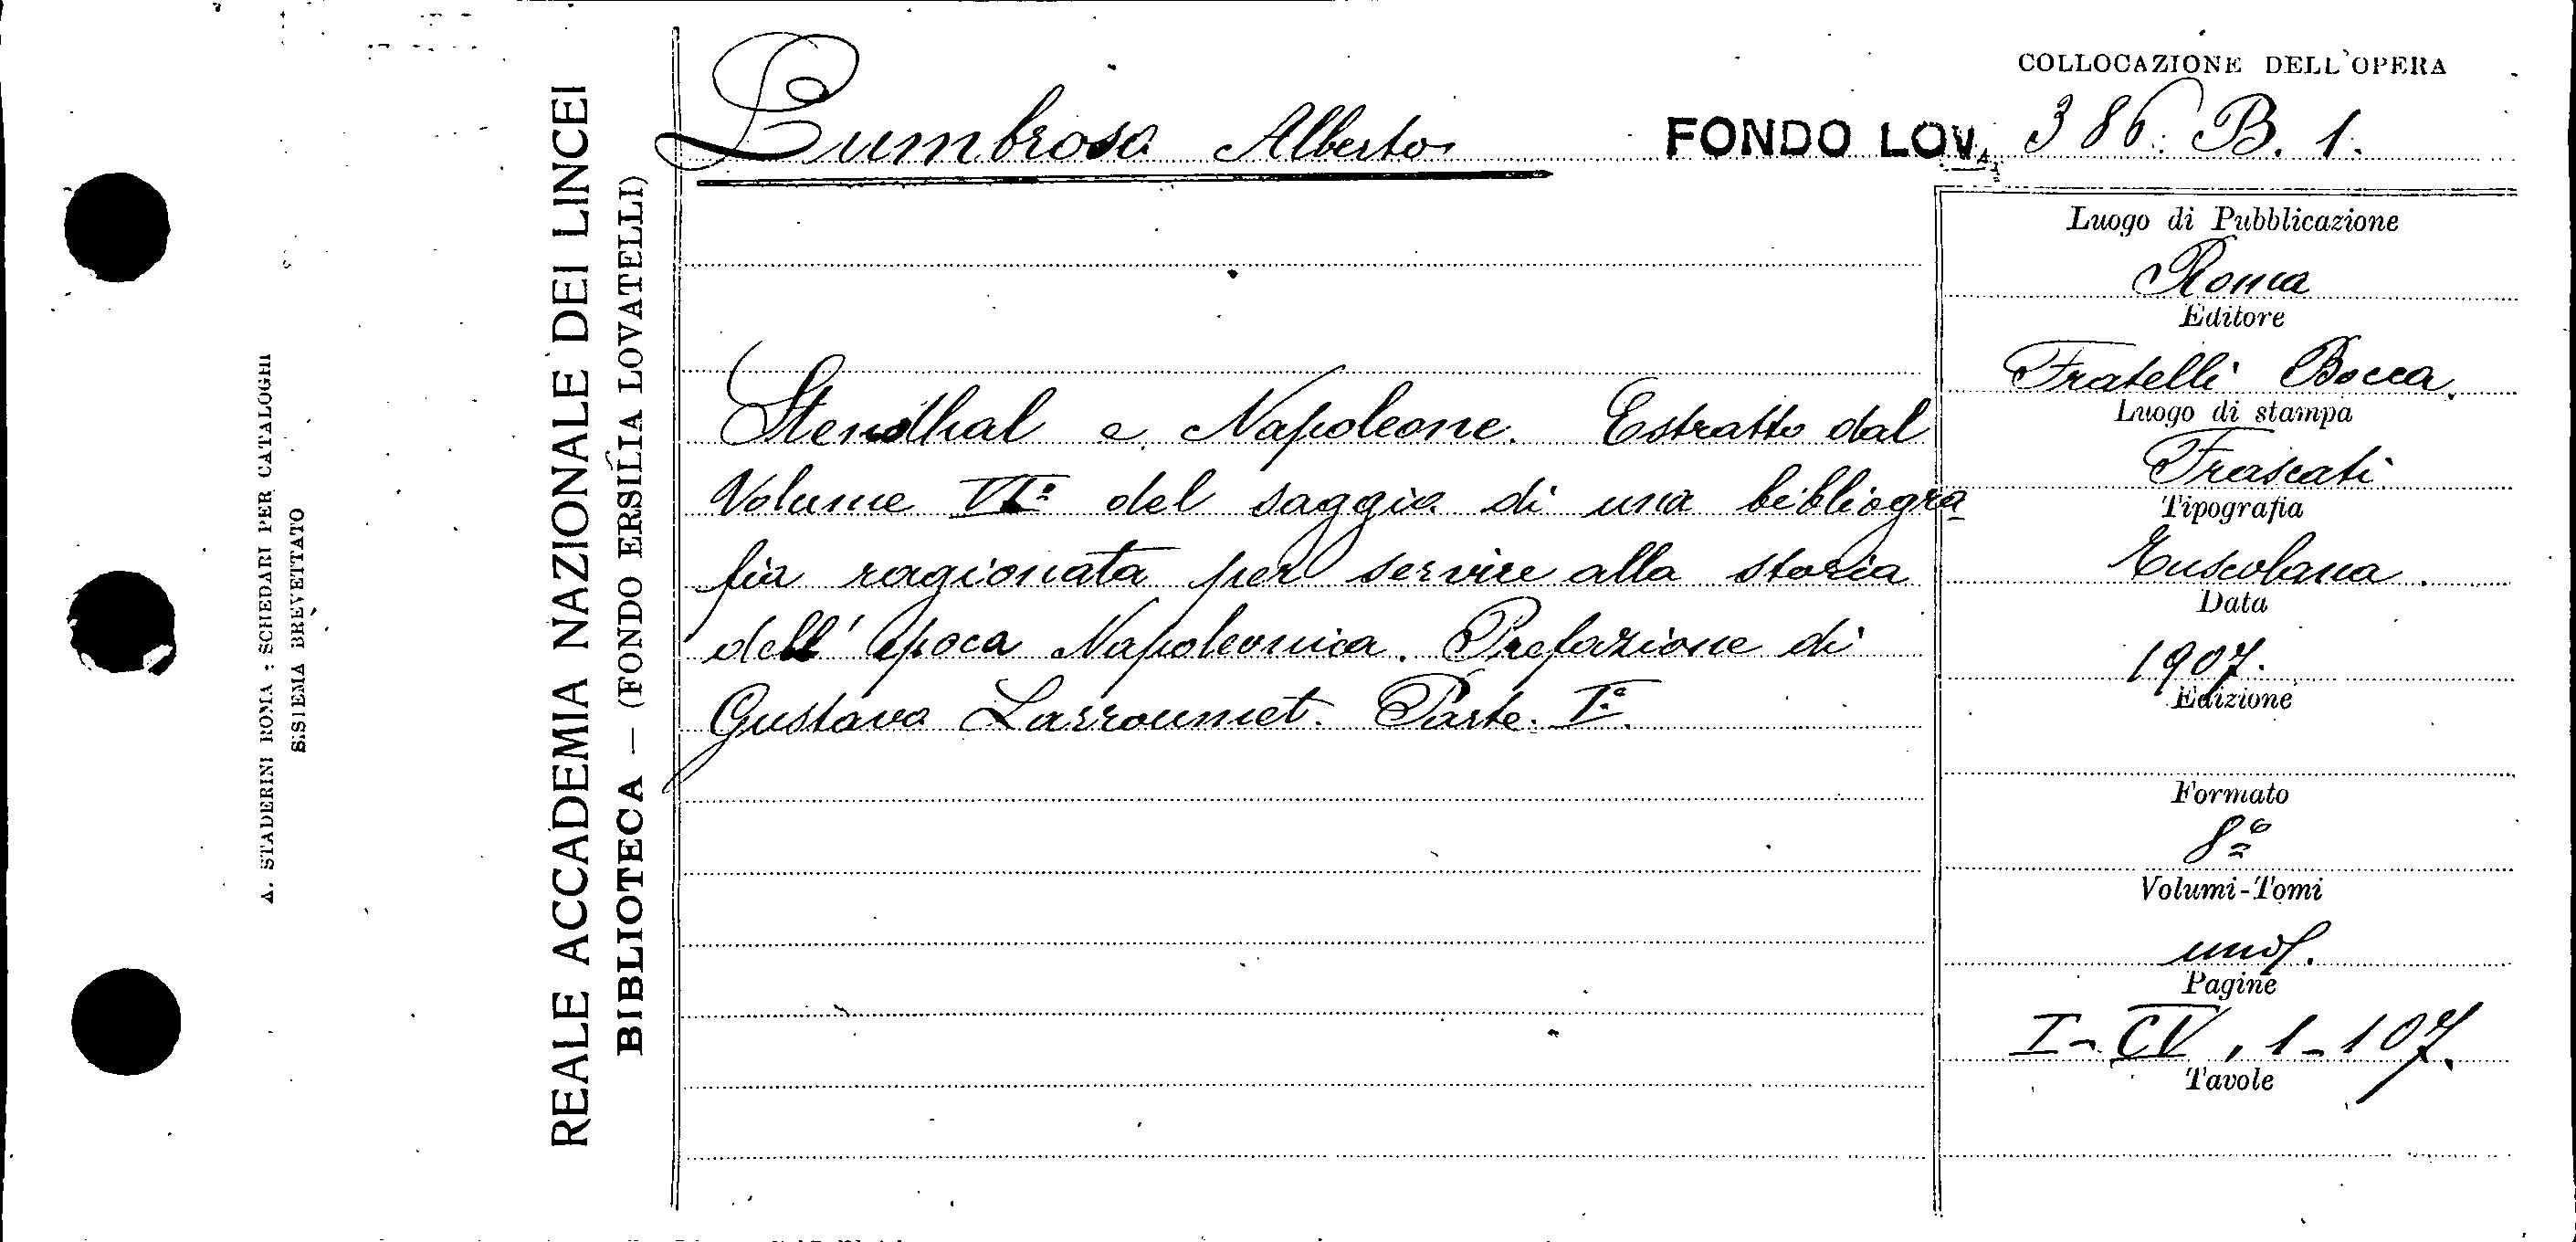 A. STADERINI ROMA : SCHEDARI PER CATALOGHI
SISTEMA BREVETTATO
REALE ACCADEMIA NAZIONALE DEI LINCEI
BIBLIOTECA — (FONDO ERSILIA LOVATELLI)
Lumbroso Alberto
COLLOCAZIONE DELL'OPERA
FONDO LOV. 386. B. 1.
Stendhal e Napoleone. Estratto dal
Volume VIº del saggio di una bibliogra
fia ragionata per servire alla storia
dell' epoca Napoleonica. Prefazione di
Gustavo Larroumet. Parte Iª.
Luogo di Pubblicazione
Roma
Editore
Fratelli Bocca
Luogo di stampa
Frascati
Tipografia
Tuscolana.
Data
1907.
Edizione
Formato
8º
Volumi-Tomi
uno.
Pagine
I-CV, 1-107.
Tavole